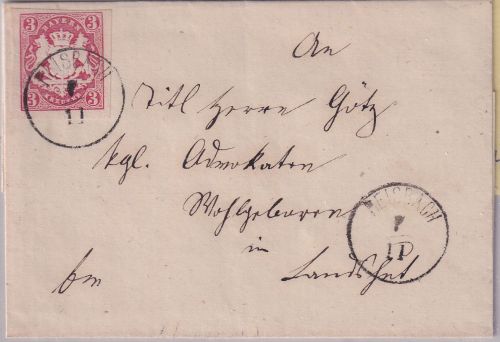 3 BAYERN 3
3 KREUZER 3
REISBACH
7
11
An
Titl Herrn Götz
kgl. Advokaten
Wohlgeboren
in
Landshut
REISBACH
7